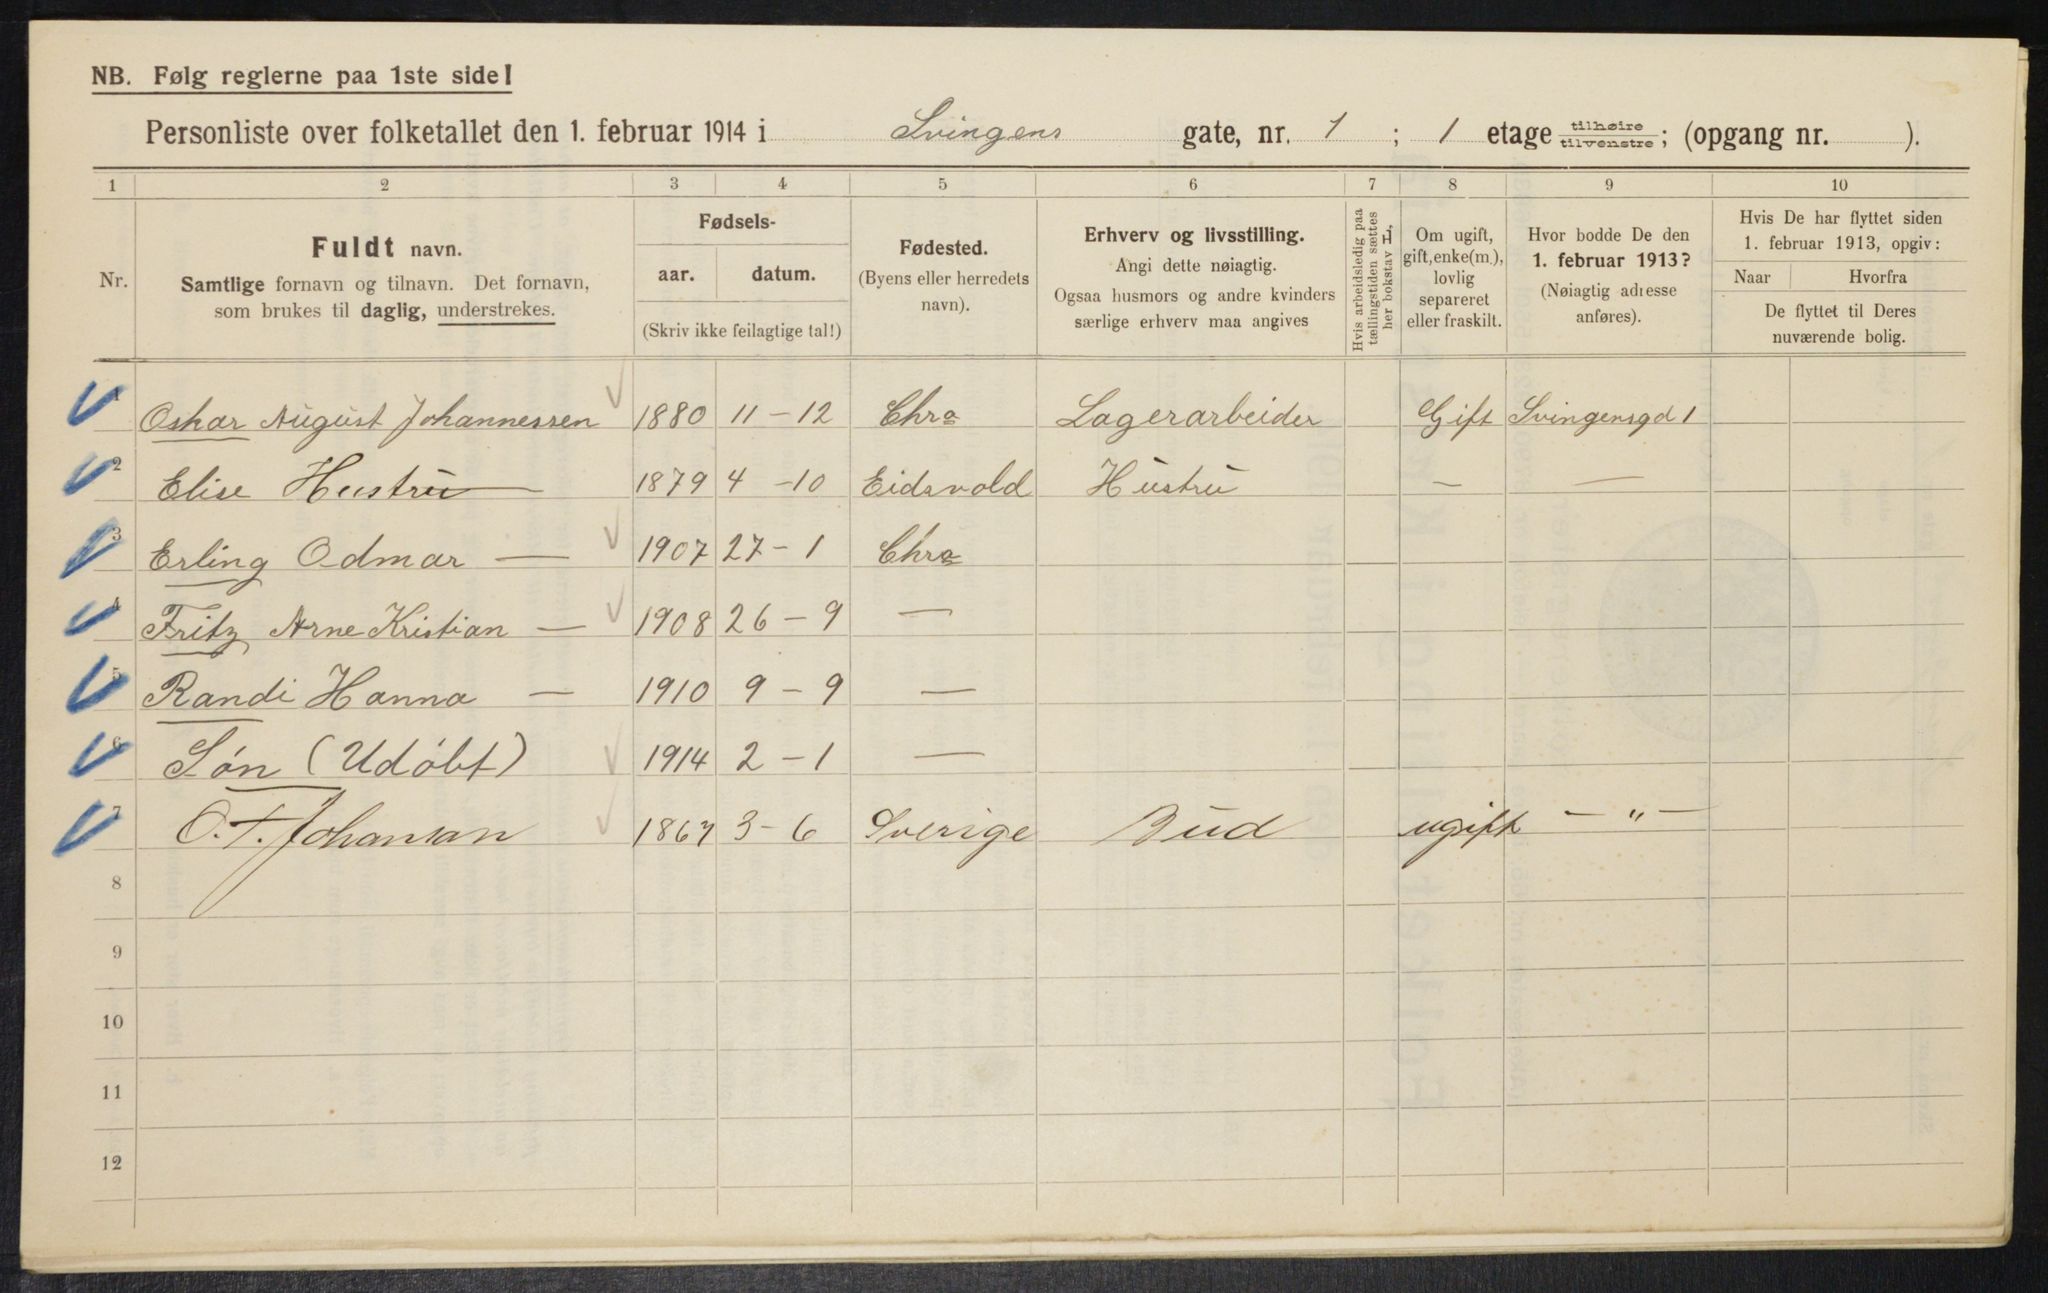 NB. Følg reglerne paa 1ste side!
Personliste over folketallet den 1. februar 1914 i Svingens gate, nr. 1 ; 1 etage tilhøire tilvenstre; (opgang nr. ).
1 2 3 4 5 6 7 8 9 10
Nr.
Fuldt navn.
Samtlige fornavn og tilnavn. Det fornavn,
som brukes til daglig, understrekes.
Fødsels-
aar. datum.
(Skriv ikke feilagtige tal!)
Fødested.
(Byens eller herredets
navn).
Erhverv og livsstilling.
Angi dette nøiagtig.
Ogsaa husmors og andre kvinders
særlige erhverv maa angives
Hvis arbeidsledig paa
tællingstiden sættes
her bokstav H.
Om ugift,
gift, enke(m.),
lovlig
separeret
eller fraskilt.
Hvor bodde De den
1. februar 1913?
(Nøiagtig adresse
anføres).
Hvis De har flyttet siden
1. februar 1913, opgiv:
Naar Hvorfra
De flyttet til Deres
nuværende bolig.
1 Oskar August Johannessen 1880 11 - 12 Chra Lagerarbeider Gift Svingensgd 1
2 Elise Hustru 1879 4 - 10 Eidsvold Hustru — —
3 Erling Odmar — 1907 27 - 1 Chra
4 Fritz Arne Kristian — 1908 26 - 9 —
5 Randi Hanna — 1910 9 - 9 —
6 Søn (Udøbt) 1914 2 - 1 —
7 O. F. Johansan 1867 3 - 6 Sverige Bud ugift — " —
8
9
10
11
12